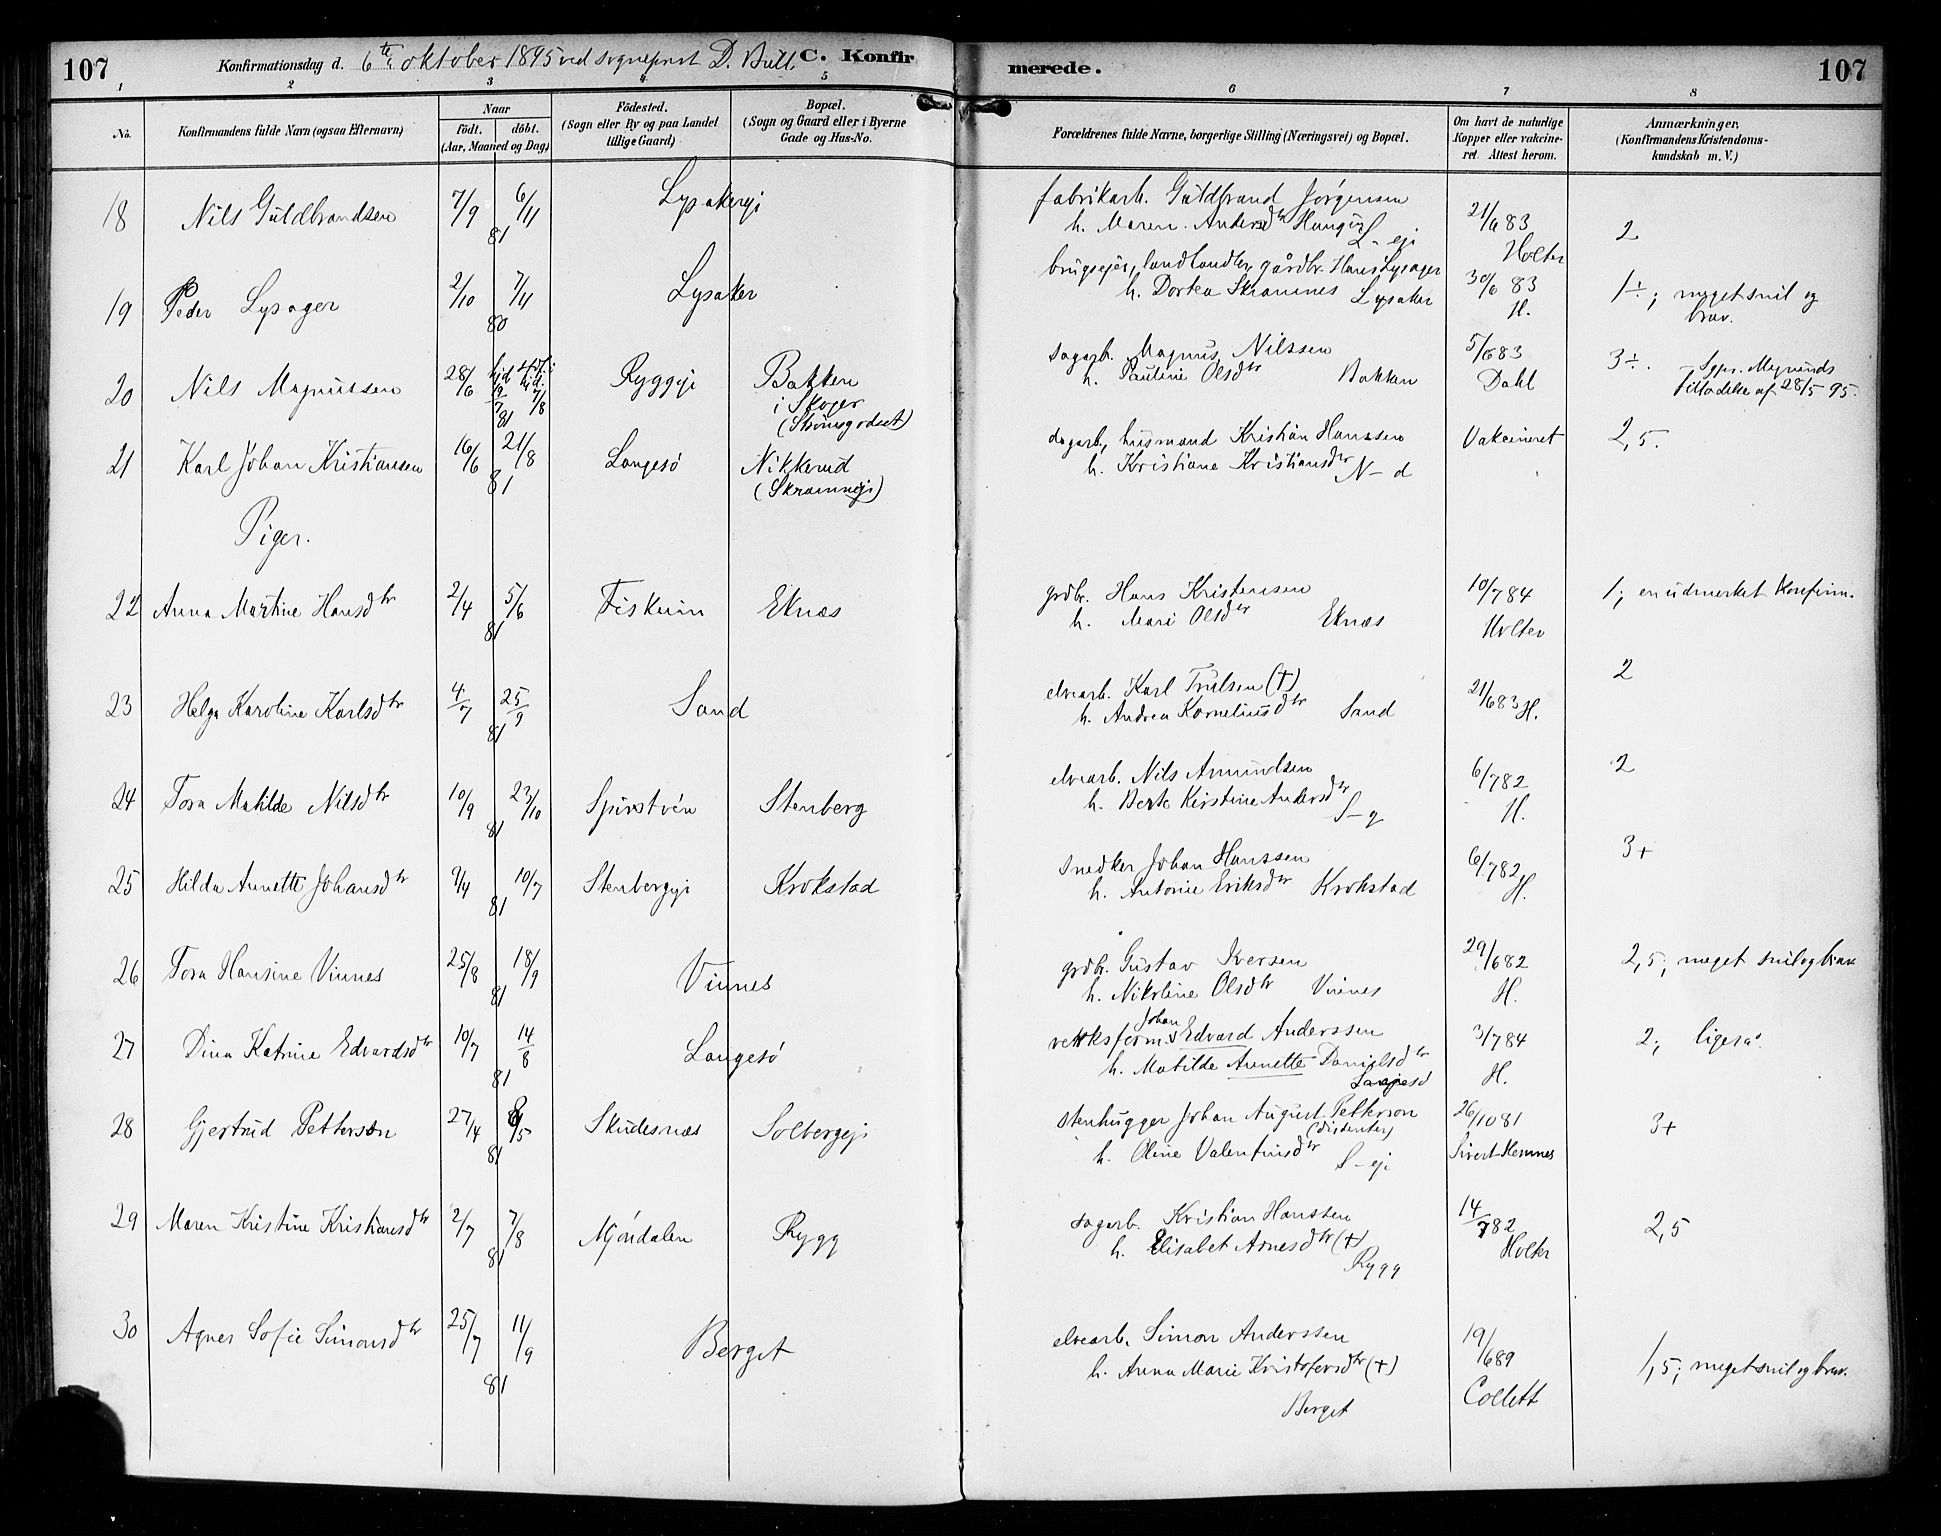 107
Konfirmationsdag d. 6te oktober 1895 ved sogneprest D. Bull.
C. Konfir
merede.
107
1 2 3 4 5 6 7 8
No.
Konfirmandens fulde Navn (ogsaa Efternavn)
Naar
födt. döbt.
(Aar, Maaned og Dag)
Födested.
(Sogn eller By og paa Landet
tillige Gaard)
Bopæl.
(Sogn og Gaard eller i Byerne
Gade og Hus-No.
Forældrenes fulde Navne, borgerlige Stilling (Næringsvei) og Bopæl.
Om havt de naturlige
Kopper eller vakcine-
ret Attest herom.
Anmærkninger,
(Konfirmandens Kristendoms-
kundskab m. V.)
18 Nils Guldbrandsen 7/9 6/11 81 Lysakereji
fabrikarb. Guldbrand Jørgensen
h. Maren Andersdtr L-ej
21/6 83 Holter
2
19 Peder Lysager 2/10 7/11 80 Lysaker
brugsejer, landhandler, gårdbr. Hans Lysager
h. Dortea Skramnes Lysaker
30/6 83 H.
1÷; meget snil og
brav.
20 Nils Magnussen 28/6 81 Ryggeje Bakken
i Skoger
(Strømsgodset)
sagarb. Magnus Nilssen
h. Pauline Olsdtr Bakken
5/6 83 Dahl
3÷. Sgpr. Mejnunds
Tilladelse af 28/5 95.
21 Karl Johan Kristiansen 16/6 21/8 81 Langesø Nikkerud
(Skramneji)
dagarb., husmand Kristian Hanssen
h. Kristiane Kristiansdtr N-d
Vakcineret
2,5.
Piger.
22 Anna Martine Hansdtr 2/4 5/6 81 Fiskum Eknæs
grdbr. Hans Kristensen
h. Mari Olsdtr Eknæs
10/7 84 Holter
1; en udmerket Konfirm.
23 Helga Karoline Karlsdtr 4/7 25/9 81 Sand
elvearb. Karl Trulsen (†)
h. Andrea Korneliusdtr Sand
21/6 83 H.
2
24 Tora Matilde Nilsdtr 10/9 23/10 81 Stenberg
elvearb. Nils Amundsen
h. Berte Kirstine Andersdtr S-g
6/7 82 H.
2
25 Hilda Annette Johansdtr 9/4 10/7 81 Stenbergeji Krokstad
snedker Johan Hanssen
h. Antonie Eriksdtr Krokstad
6/7 82 H.
3+
26 Tora Hansine Vinnes 25/8 18/9 81 Vinnes
grdbr. Gustav Iversen
h. Nikoline Olsdtr Vinnes
29/6 82 H.
2,5; meget snil og brav
27 Dina Katrine Edvardsdtr 10/7 14/8 81 Langesø
verksform. Johan Edvard Anderssen
h. Matilde Annette Danielsdtr
Langesø
3/7 84 H.
2; ligeså.
28 Gjertrud Petterson 27/4 8/5 81 Skudesnæs Solbergeji
stenhugger Johan August Petterson
(dissenter)
h. Oline Valentinsdtr S-eji
26/10 81
Sivert Hemnes
3+
29 Maren Kristine Kristiansdtr 2/7 7/8 81 Mjøndalen Rygg
sagarb. Kristian Hanssen
h. Elisabet Arnesdtr (†)
Rygg
14/7 82
Holter
2,5
30 Agnes Sofie Simonsdtr 25/7 11/9 81 Berget
elvearb. Simon Anderssen
h. Anna Marie Kristofersdtr (†)
Berget
19/6 89
Collett
1,5; meget snil og brav.